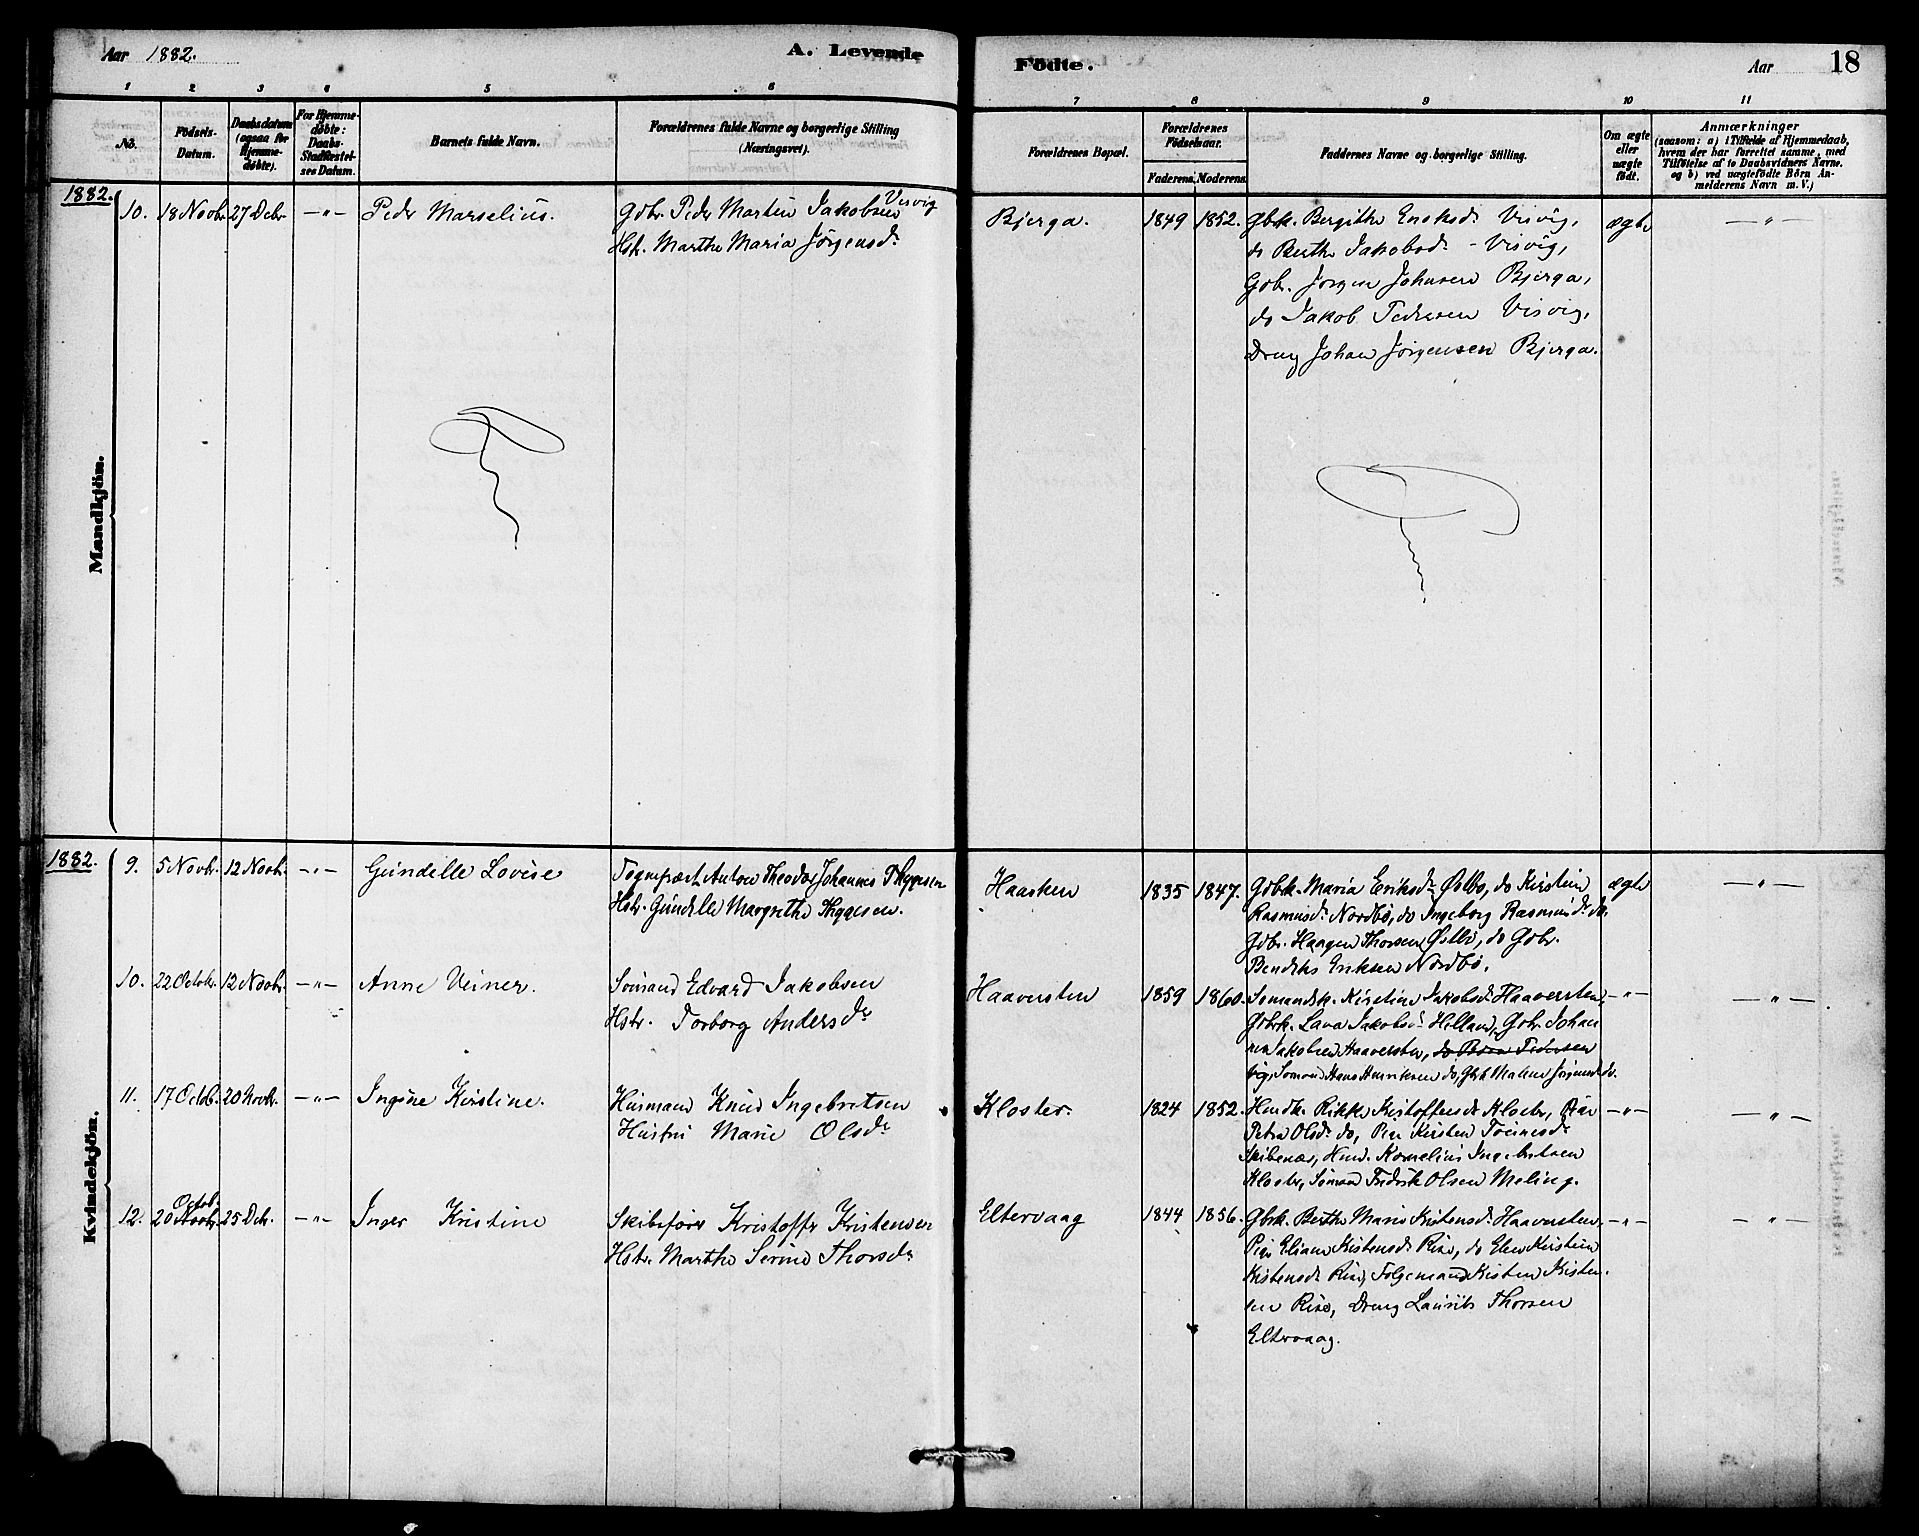 Aar 1882.
A. Levende
Födte.
Aar
18
1 2 3 4 5 6
7 8 9 10 11
No.
Födsels-Datum.
Daabsdatum (ogsaa for Hjemme-döbte).
For Hjemme-döbte: Daabs-Stadfæstel-ses Datum.
Barnets fulde Navn.
Forældrenes fulde Navne og borgerlige Stilling (Næringsvei).
Forældrenes Bopæl.
Forældrenes Födselsaar.
Faderens. Moderens.
Faddernes Navne og borgerlige Stilling.
Om ægte eller uægte födt.
Anmærkninger
(saasom: a) i Tilfælde af Hjemmedaab,
hvem der har forrettet samme, med
Tilföielse af to Daabsvidners Navne,
og b) ved uægtefödte Börn An-
melderens Navn m. V.)
Mandkjön.
1882.
10. 18 Novbr. 27 Debr. —"— Peder Marselius.
Gdbr. Peder Martin Jakobsen Visvig
Hst. Marthe Maria Jörgensdr.
Bjerga. 1849 1852.
Gbrk. Bergithe Enoksdr. Visvig,
do Berthe Jakobsdr. - Visvig,
Gdbr. Jörgen Johnsen Bjerga,
do Jakob Pedersen Visvig,
Dreng Johan Jörgensen Bjerga.
ægte —"—
Kvindekjön.
1882.
9. 5 Novbr. 12 Novbr. —"— Gundelle Lovise
Sognepræst Anton Theodor Johannes Thygesen
Hstr. Gundelle Margrethe Thygesen.
Haasken 1835 1847.
Gdbrk. Maria Eriksdr. Östbö, do Kirstein
Rasmusdr. Nordbö, do Ingeborg Rasmusdr. do.
Gdbr. Haagen Thorsen Östbö, do Gdbr.
Bendiks Eriksen Nordbö.
ægte —"—
10. 22 Octobr. 12 Novbr. —"— Anne Veiner.
Sömand Edvard Jakobsen
Hstr. Torborg Andersdr
Haaversten 1859 1860.
Sömandsk. Kirstine Jakobsdr. Haaversten,
Gdbrk. Lava Jakobsdr. Helland, Gdbr. Johan
nes Jakobsen Haaversten, do Peder Pedersen
Vig, Sömand Hans Henriksen do, Gbrk Malene Jörgensdr do.
—"— —"—
11. 17 Octob. 20 Novbr. —"— Ingine Kirstine.
Husmand Knud Ingebretsen
Hustru Marie Olsdr
Kloster. 1824 1852.
Hmdk. Rikke Kristoffersdr Kloster, Pige
Petra Olsdr. do, Pige Kirsten Tönnesdr
Skibenæs, Hmd. Kornelius Ingebretsen
Kloster, Sömand Fredrik Olsen Meling.
—"— —"—
12. 20 Octob. Novbr. 25 Debr. —"— Inger Kristine
Skibsförer Kristoffer Kristensen
Hstr. Marthe Serine Thorsdr
Eltervaag 1844 1856.
Gbrk. Berthe Marie Kistensdr. Haaversten,
Pige Eliane Kistensdr. Risö, do Elen Kirstein
Kistensdr. Risö, Folgemand Kisten Kisten-
sen Risö, Dreng Laurits Thorsen
Eltervaag.
—"— —"—